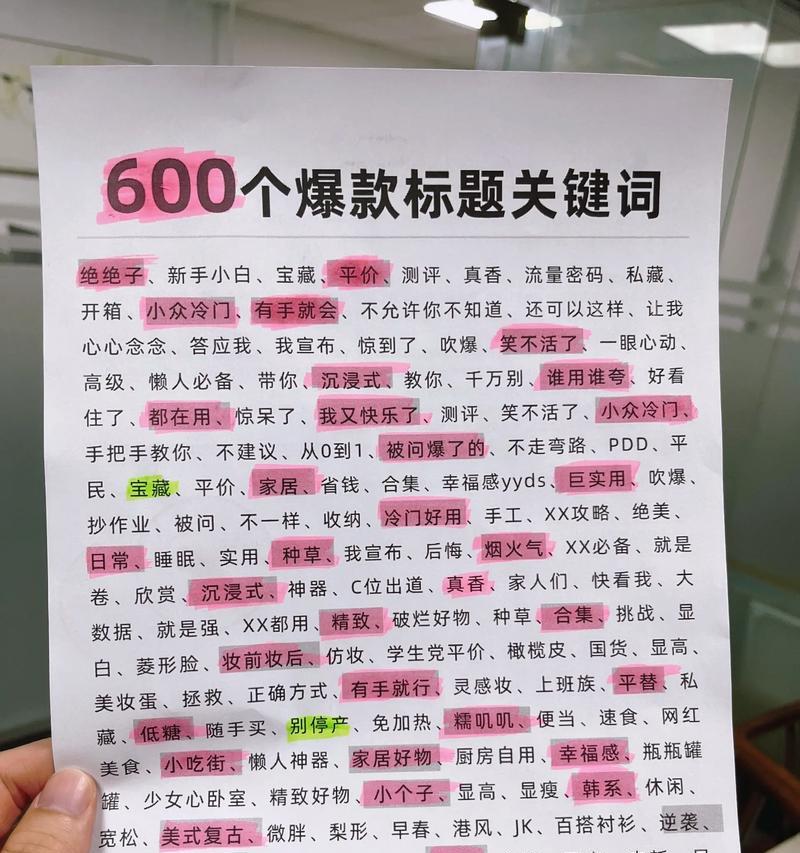 600个爆款标题关键词
绝绝子、新手小白、宝藏、平价、测评、真香、流量密码、私藏、
开箱、小众冷门、有手就会、不允许你不知道、还可以这样、让我
心心念念、答应我、我宣布、惊到了、吹爆、笑不活了、一眼心动、
高级、懒人必备、带你、沉浸式、教你、千万别、谁用谁夸、好看
住了、都在用、惊呆了、我又快乐了、测评、笑不活了、小众冷门、
手把手教你、不建议、从0到1、被问爆了的、不走弯路、PDD、平
民、宝藏、平价、家居、省钱、合集、幸福感yyds、巨实用、吹爆、
抄作业、被问、不一样、收纳、冷门好用、手工、XX攻略、绝美、
日常、睡眠、实用、种草、我宣布、后悔、烟火气、XX必备、就是
卷、欣赏、沉浸式、神器、C位出道、真香、家人们、快看我、大
数据、就是强、XX都用、精致、破烂好物、种草、合集、挑战、显
白、菱形脸、妆前妆后、仿妆、学生党平价、橄榄皮、国货、显高、
美妆蛋、拯救、正确方式、有手就行、灵感妆、上班族、平替、私
藏、低糖、随手买、别停产、免加热、糯叽叽、便当、速食、网红
美食、小吃街、懒人神器、家居好物、厨房自用、幸福感、瓶瓶罐
罐、少女心卧室、精致好物、小个子、显高、显瘦、韩系、休闲、
宽松、美式复古、微胖、梨形、早春、港风、JK、百搭衬衫、逆袭、